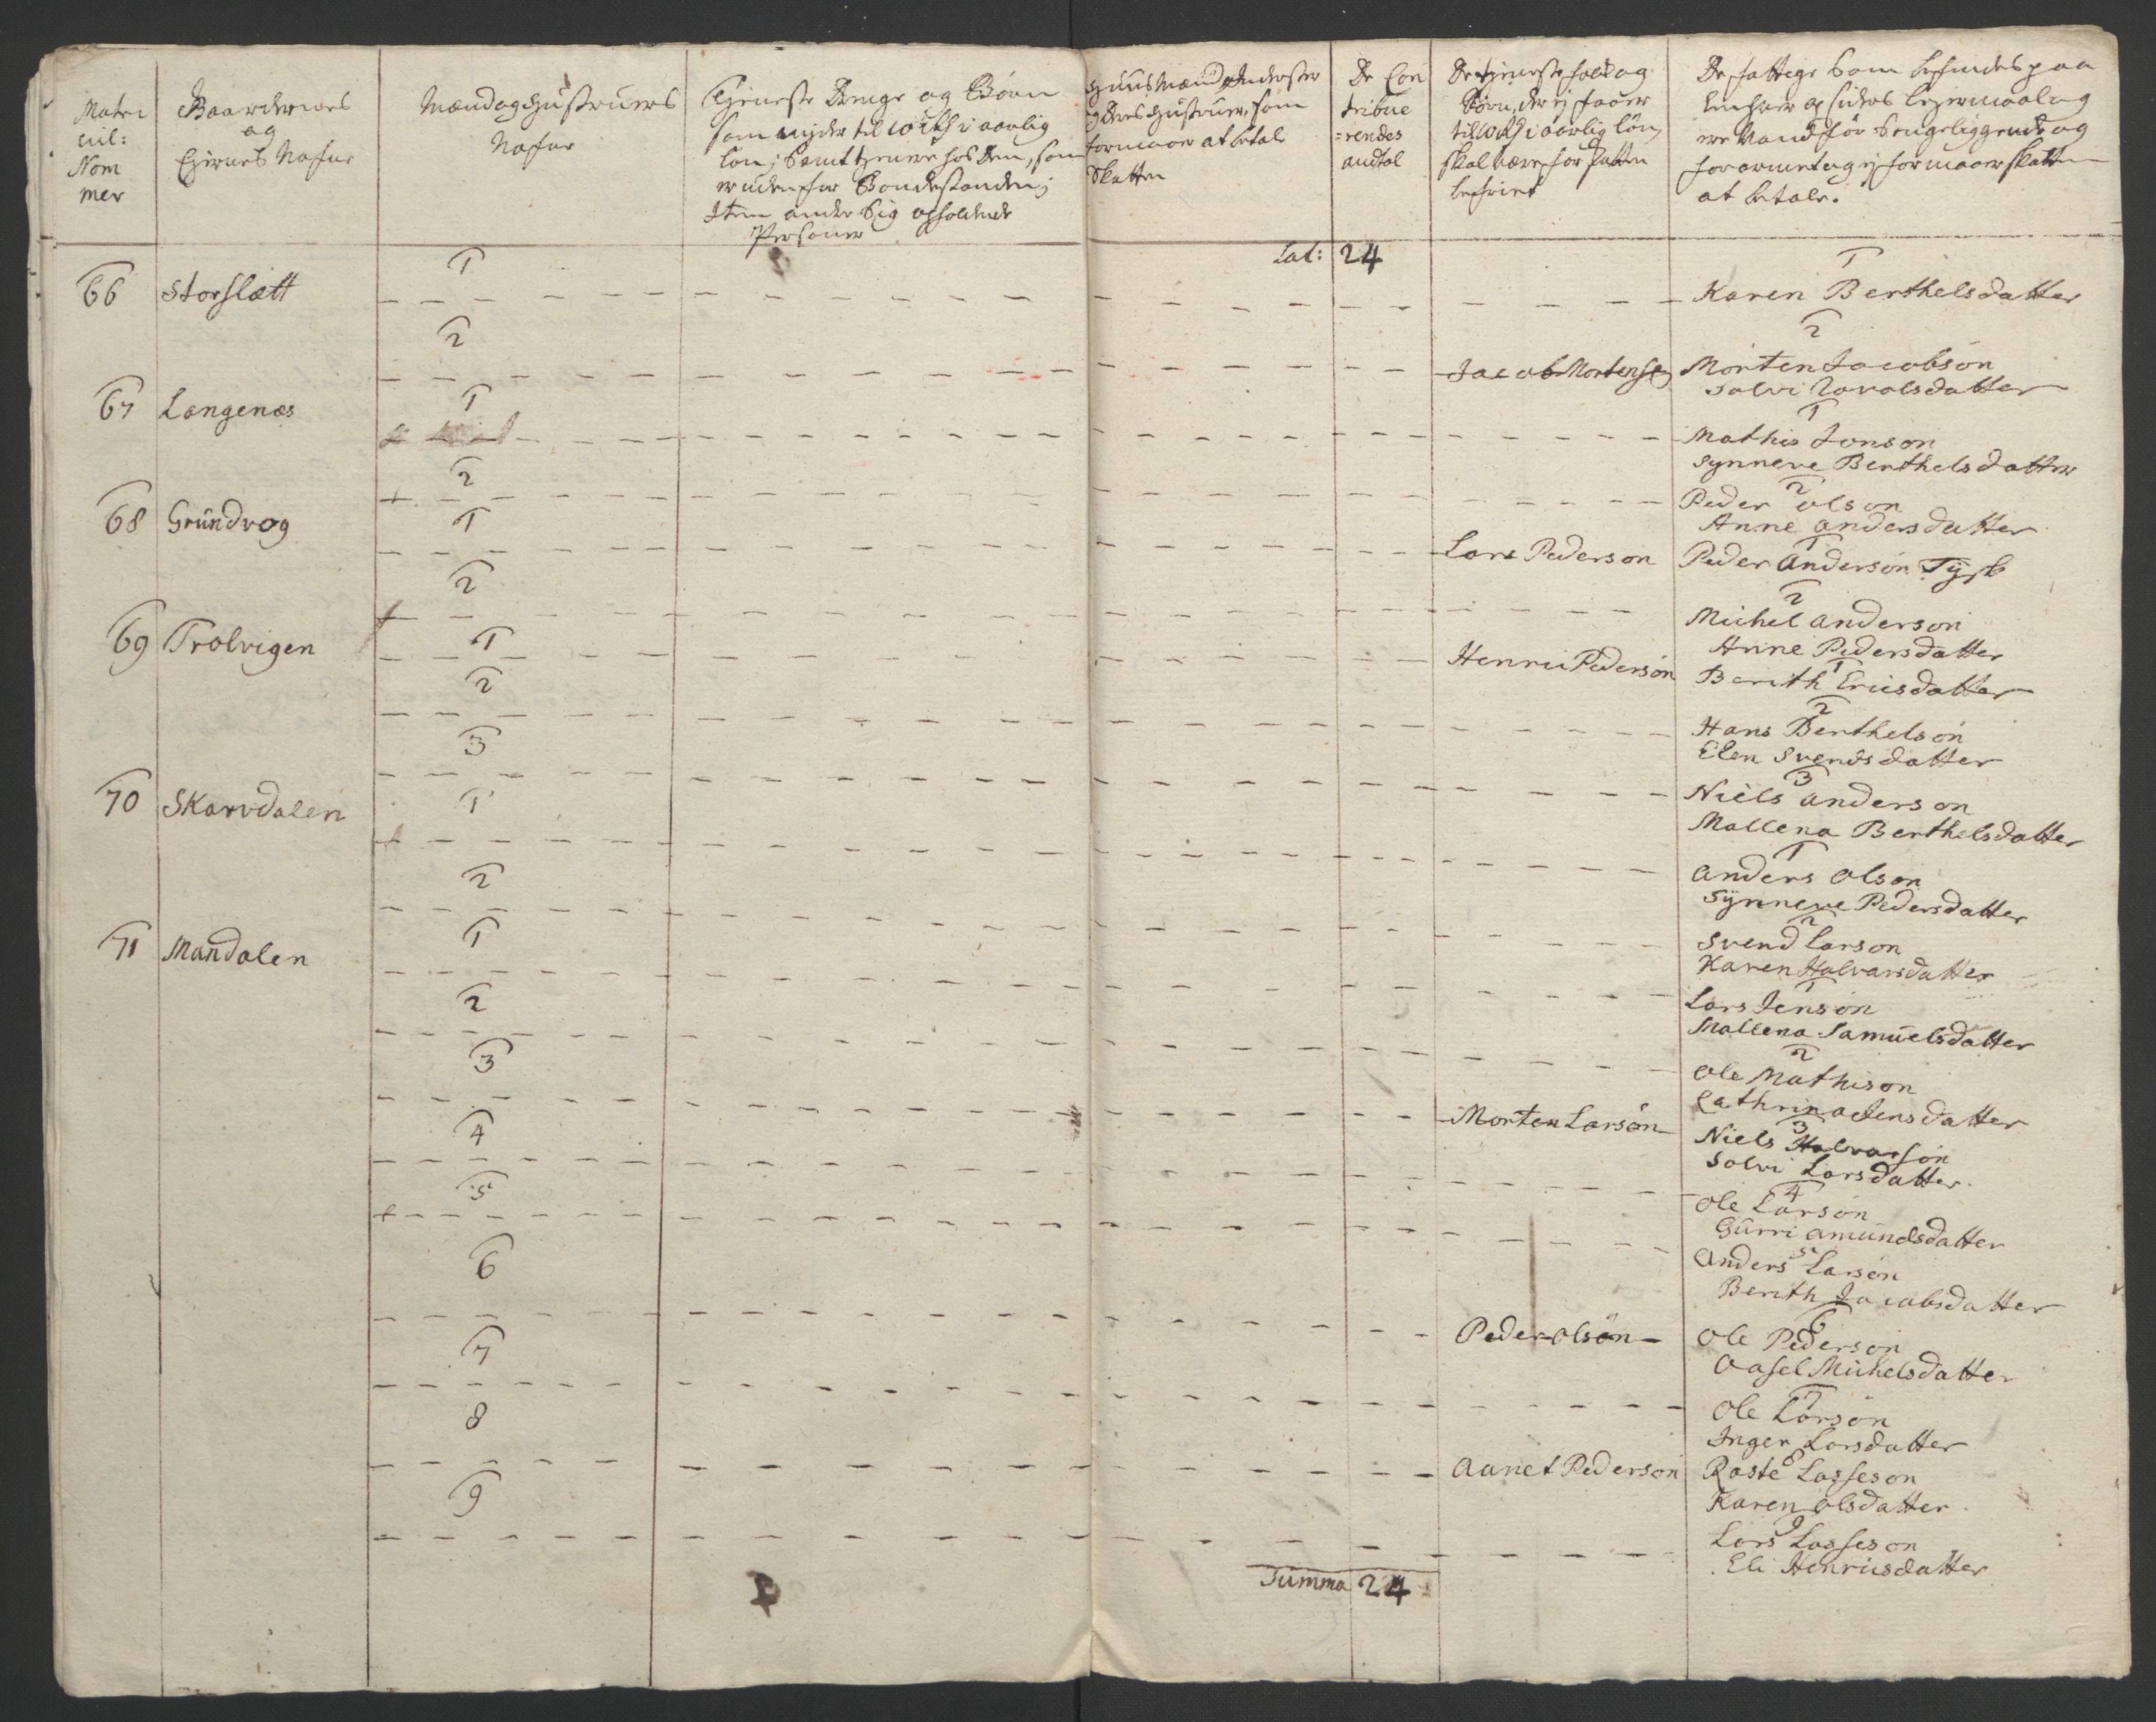 Matri
cul:
Nom
mer
Gaardernes
og
Eiernes Nafne
Mænd og Hustruers
Nafne
Tieneste Drenge og Børn
som nyder til 10 rdl i aarlig
Løn; samt tienere hos dem, som
er uden for Bondestanden;
Item andre sig opholdende
Personer
Huusmænd
og deres Hustruer, som
formaar at betale
Skatten
De Con
tribue
=rendes
andtal
De tieneste folk og
Børn, der ej faaer
til 10 rdl i aarlig løn,
skal være for Skatten
befriet
De fattige som befindes paa
Enhver
ere Vandføre Sengeliggende og
forarmet og ej formaaer Skatten
at betale.
Lat: 24
66 Storslætt
1
1
Karen Berthelsdatter
2
2
Jacob Mortensen
Morten Jacobson
Solvi datter
67 Langenæs
1
1
Mathis Jonson
Synneve Berthelsdatter
2
2
Peder Olson
Anne Andersdatter
68 Grundvog
1
1
Lars Pederson
Peder Anderson Tysk
2
2
Michel Anderson
Anne Pedersdatter
69 Trolvigen
1
1
Henric Pederson
Berith Ericsdatter
2
2
Hans Berthelson
Elen Svendsdatter
3
3
Niels Anderson
Mallena Berthelsdatter
70 Skarvdalen
1
1
Anders Olson
Synneve Pedersdatter
2
2
Svend Larson
Karen Halvarsdatter
71 Mandalen
1
1
Lars Jenson
Mallena Samuelsdatter
2
2
Ole Mathison
Cathrina Jensdatter
3
3
Morten Larson
Niels Halvarson
Solvi Larsdatter
4
4
Ole Larson
Gurri Amundsdatter
5
5
Anders Larson
Berith Jacobsdatter
6
6
Peder Olson
Ole Pederson
Aasel Michelsdatter
7
7
Ole Larson
Inger Larsdatter
8
8
Aanet Pederson
Roste Lasseson
Karen Olsdatter
9
9
Lars Lasseson
Eli Henricsdatter
Summa 24